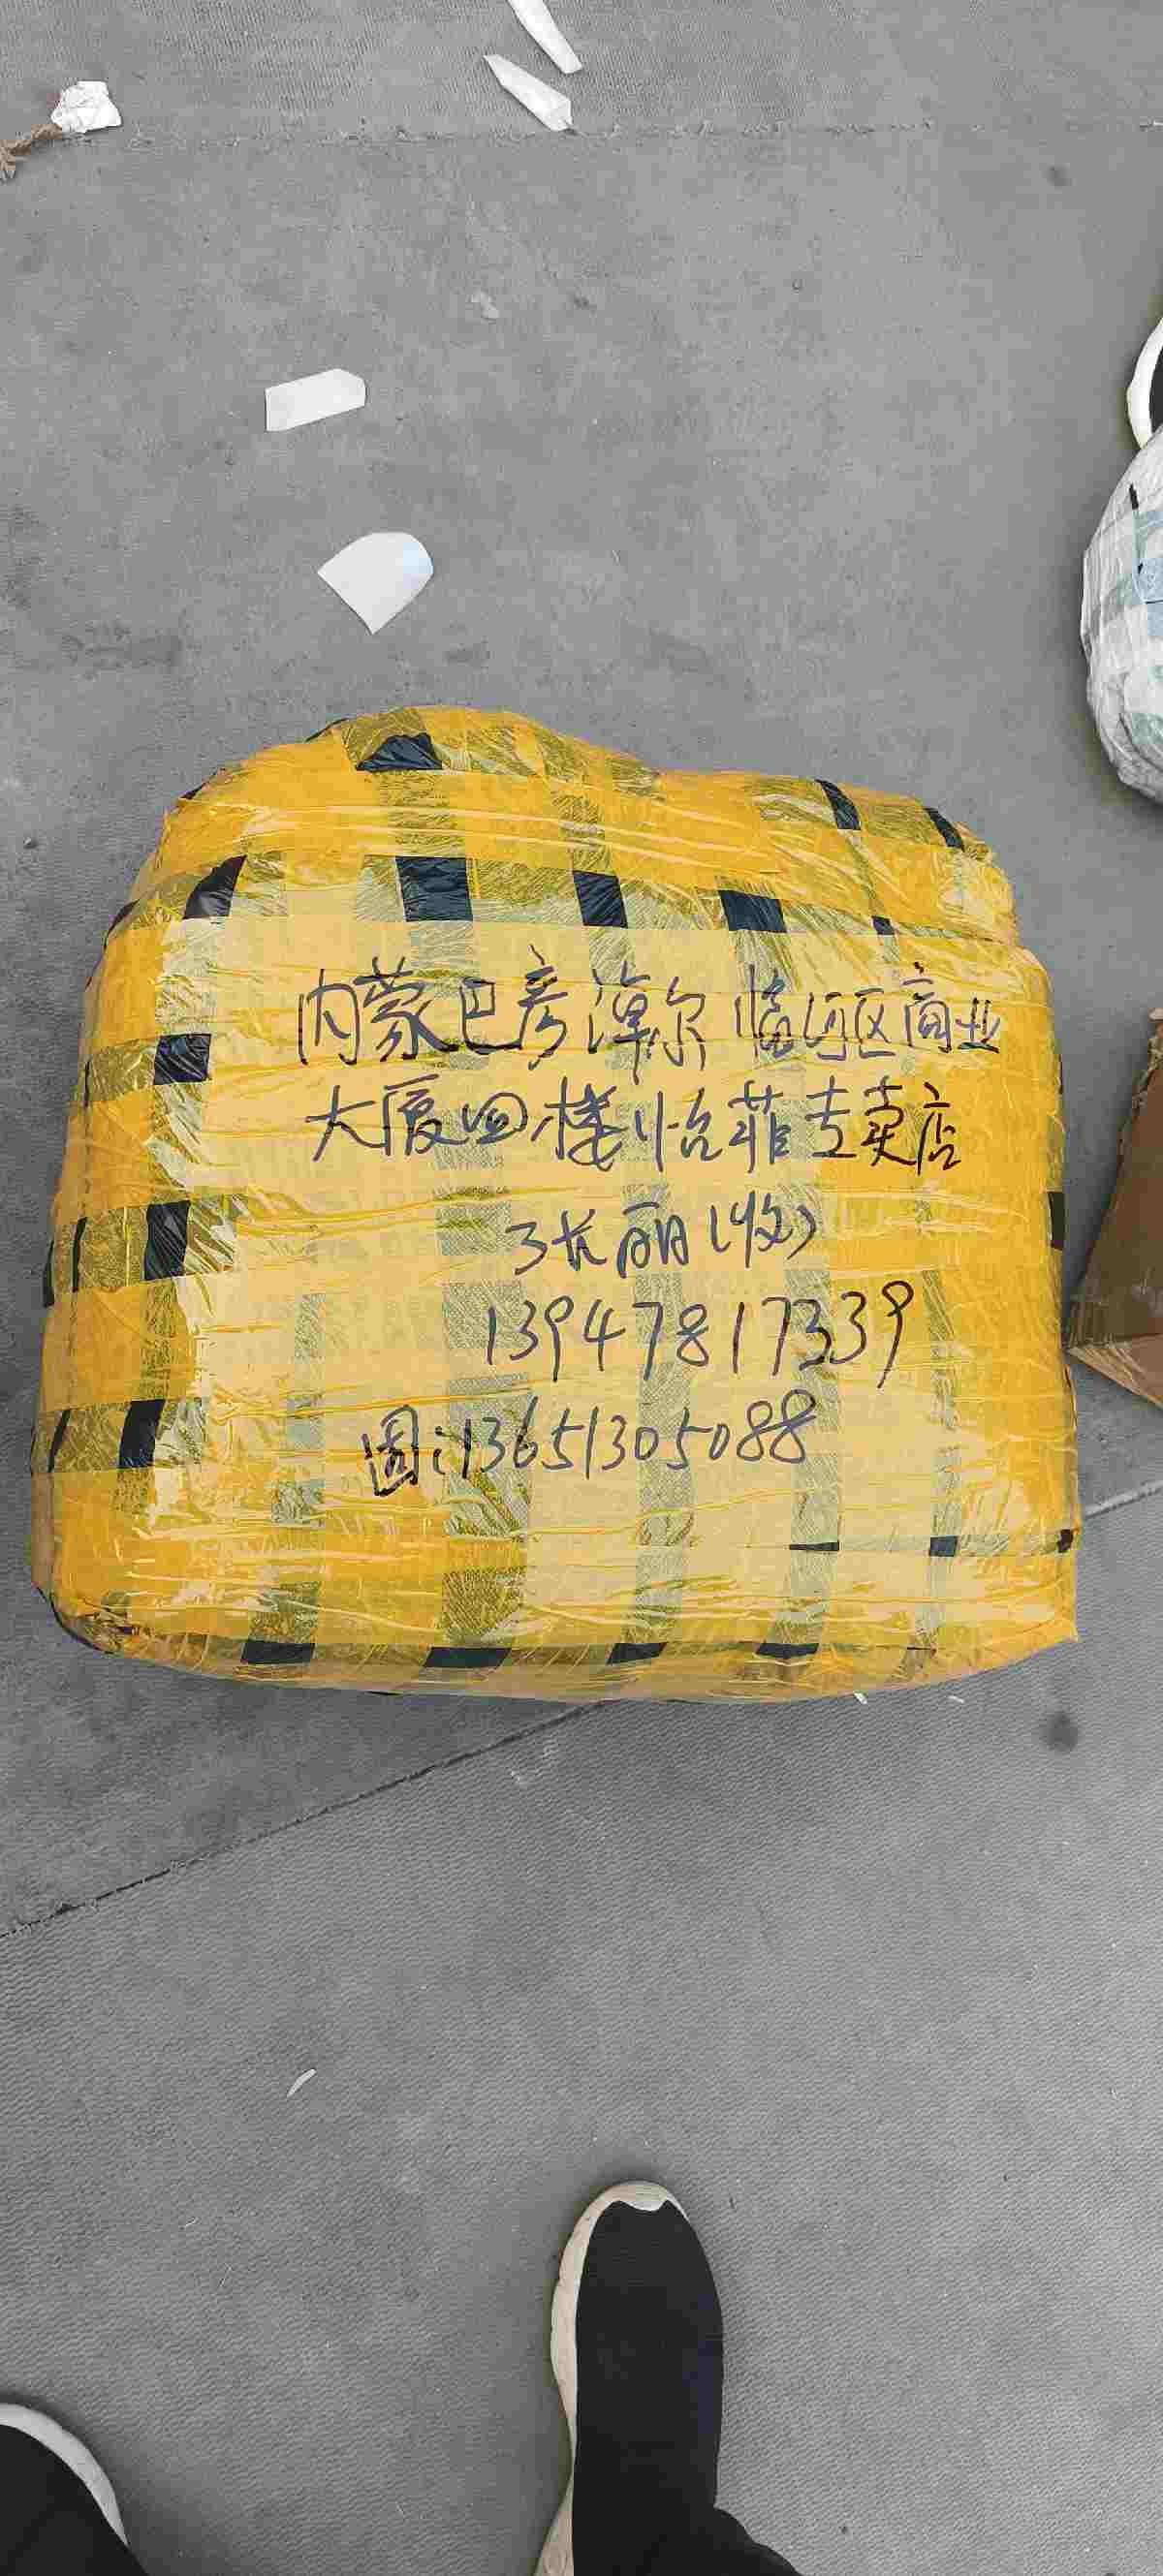 内蒙巴彦淖尔临河区商业
大厦四楼怡菲专卖店
张丽(收)
13947817339
圆:13651305088